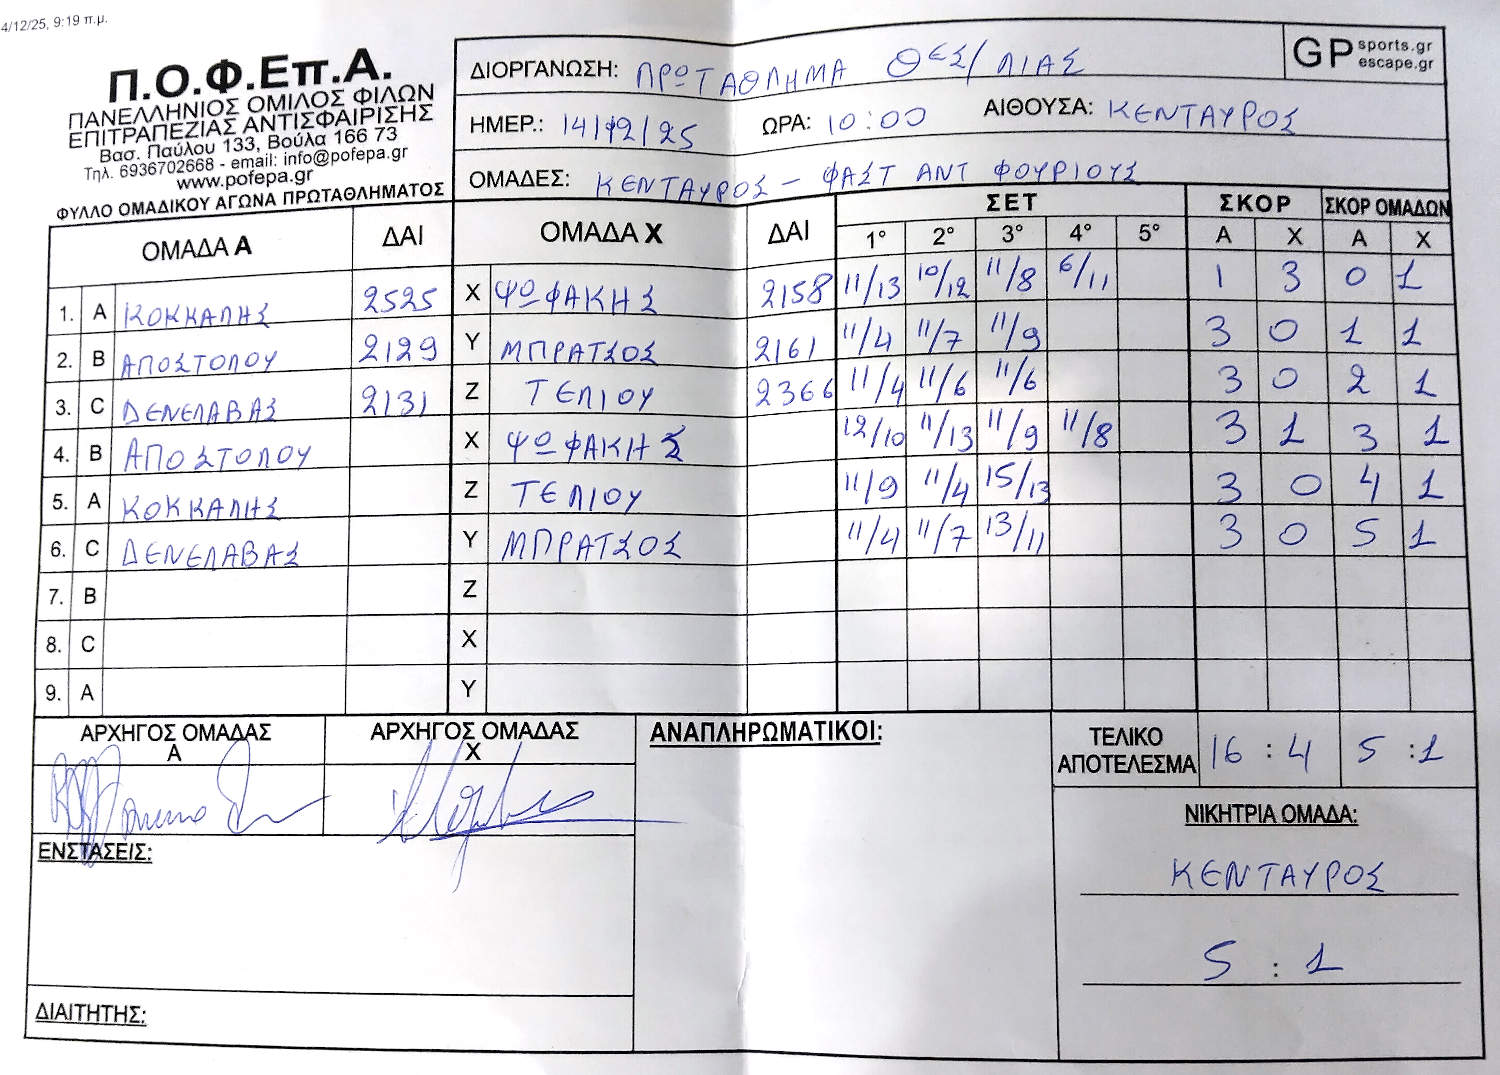 4/12/25, 9:19 π.μ.
Π.Ο.Φ.Επ.Α.
ΠΑΝΕΛΛΗΝΙΟΣ ΟΜΙΛΟΣ ΦΙΛΩΝ
ΕΠΙΤΡΑΠΕΖΙΑΣ ΑΝΤΙΣΦΑΙΡΙΣΗΣ
Βασ. Παύλου 133, Βούλα 166 73
Τηλ. 6936702668 - email: info@pofepa.gr
www.pofepa.gr
ΦΥΛΛΟ ΟΜΑΔΙΚΟΥ ΑΓΩΝΑ ΠΡΩΤΑΘΛΗΜΑΤΟΣ
ΔΙΟΡΓΑΝΩΣΗ: ΠΡΩΤΑΘΛΗΜΑ ΘΕΣ/ΛΙΑΣ
GP sports.gr escape.gr
ΗΜΕΡ.: 14/12/25 ΩΡΑ: 10:00 ΑΙΘΟΥΣΑ: ΚΕΝΤΑΥΡΟΣ
ΟΜΑΔΕΣ: ΚΕΝΤΑΥΡΟΣ - ΦΑΣΤ ΑΝΤ ΦΟΥΡΙΟΥΣ
ΟΜΑΔΑ Α ΔΑΙ ΟΜΑΔΑ Χ ΔΑΙ ΣΕΤ ΣΚΟΡ ΣΚΟΡ ΟΜΑΔΩΝ
1° 2° 3° 4° 5° Α Χ Α Χ
1. A ΚΟΚΚΑΛΗΣ 2525 X ΨΩΦΑΚΗΣ 2158 11/13 10/12 11/8 6/11 1 3 0 1
2. B ΑΠΟΣΤΟΛΟΥ 2129 Y ΜΠΡΑΤΣΟΣ 2161 11/4 11/7 11/9 3 0 1 1
3. C ΔΕΝΕΛΑΒΑΣ 2131 Z ΤΕΛΙΟΥ 2366 11/4 11/6 11/6 3 0 2 1
4. B ΑΠΟΣΤΟΛΟΥ X ΨΩΦΑΚΗΣ 12/10 11/13 11/9 11/8 3 1 3 1
5. A ΚΟΚΚΑΛΗΣ Z ΤΕΛΙΟΥ 11/9 11/4 15/13 3 0 4 1
6. C ΔΕΝΕΛΑΒΑΣ Y ΜΠΡΑΤΣΟΣ 11/4 11/7 13/11 3 0 5 1
7. B Z
8. C X
9. A Y
ΑΡΧΗΓΟΣ ΟΜΑΔΑΣ Α ΑΡΧΗΓΟΣ ΟΜΑΔΑΣ Χ ΑΝΑΠΛΗΡΩΜΑΤΙΚΟΙ:
ΤΕΛΙΚΟ ΑΠΟΤΕΛΕΣΜΑ 16 : 4 5 : 1
ΝΙΚΗΤΡΙΑ ΟΜΑΔΑ:
ΚΕΝΤΑΥΡΟΣ
5 : 1
ΕΝΣΤΑΣΕΙΣ:
ΔΙΑΙΤΗΤΗΣ: